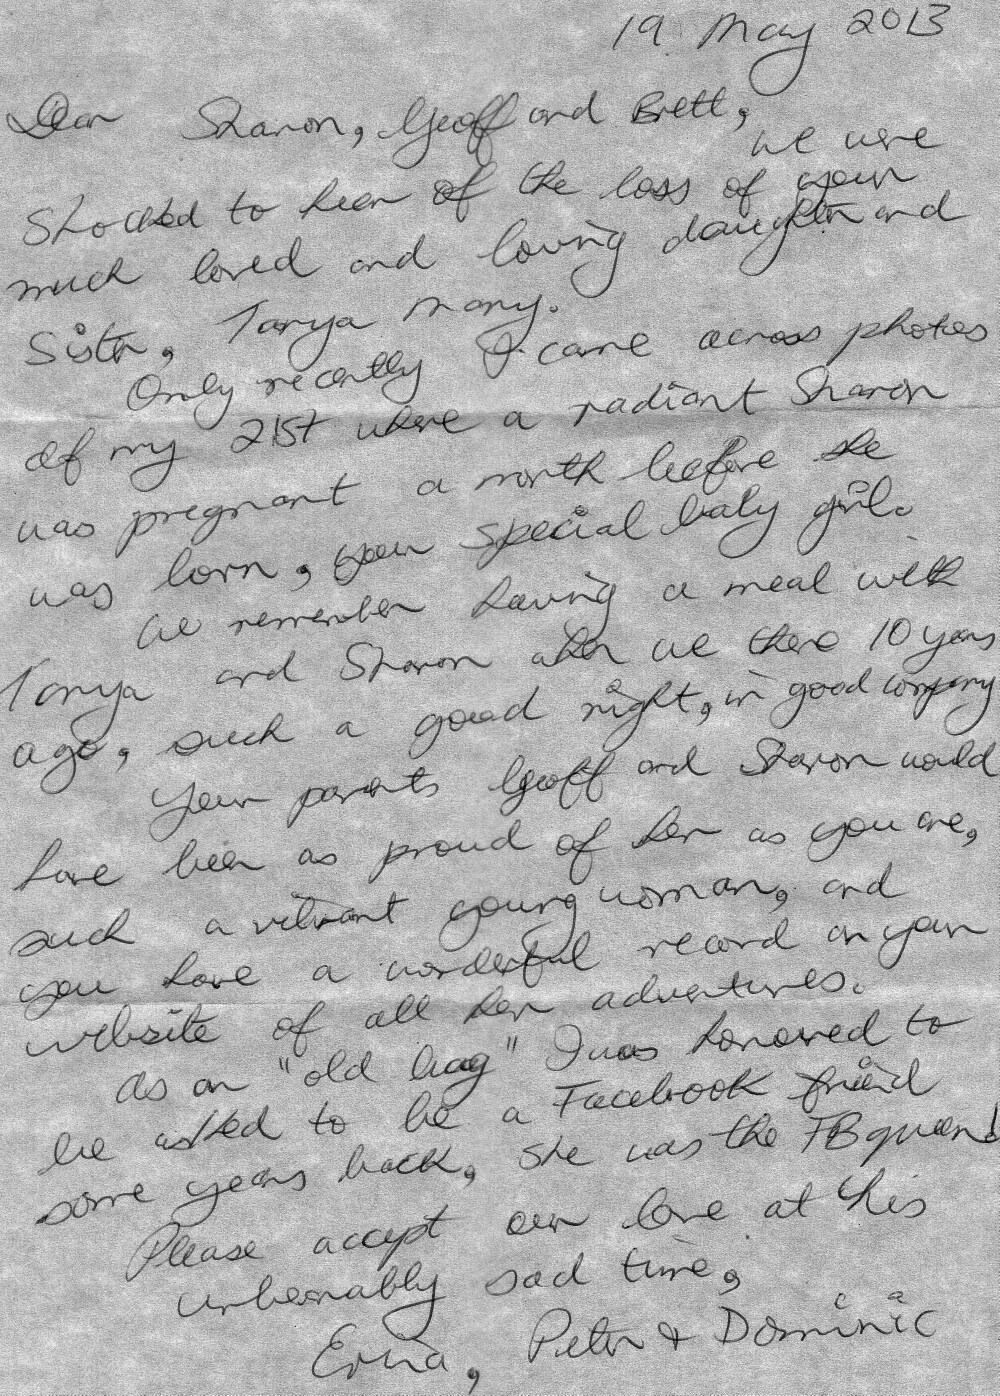 19 May 2013
Dear Sharon, Geoff and Brett,
we were
shocked to hear of the loss of your
much loved and loving daughter and
sister, Tanya Mary.
Only recently I came across photos
of my 21st where a radiant Sharon
was pregnant a month before she
was born, your special baby girl.
We remember having a meal with
Tanya and Sharon when we there 10 years
ago, such a good night, in good company
Your parents Geoff and Sharon would
have been as proud of her as you are,
such a vibrant young woman, and
you have a wonderful record on your
website of all her adventures.
As an "old bag" I was honoured to
be asked to be a Facebook friend
some years back, she was the FB queen!
Please accept our love at this
unbearably sad time,
Peter & Dominic